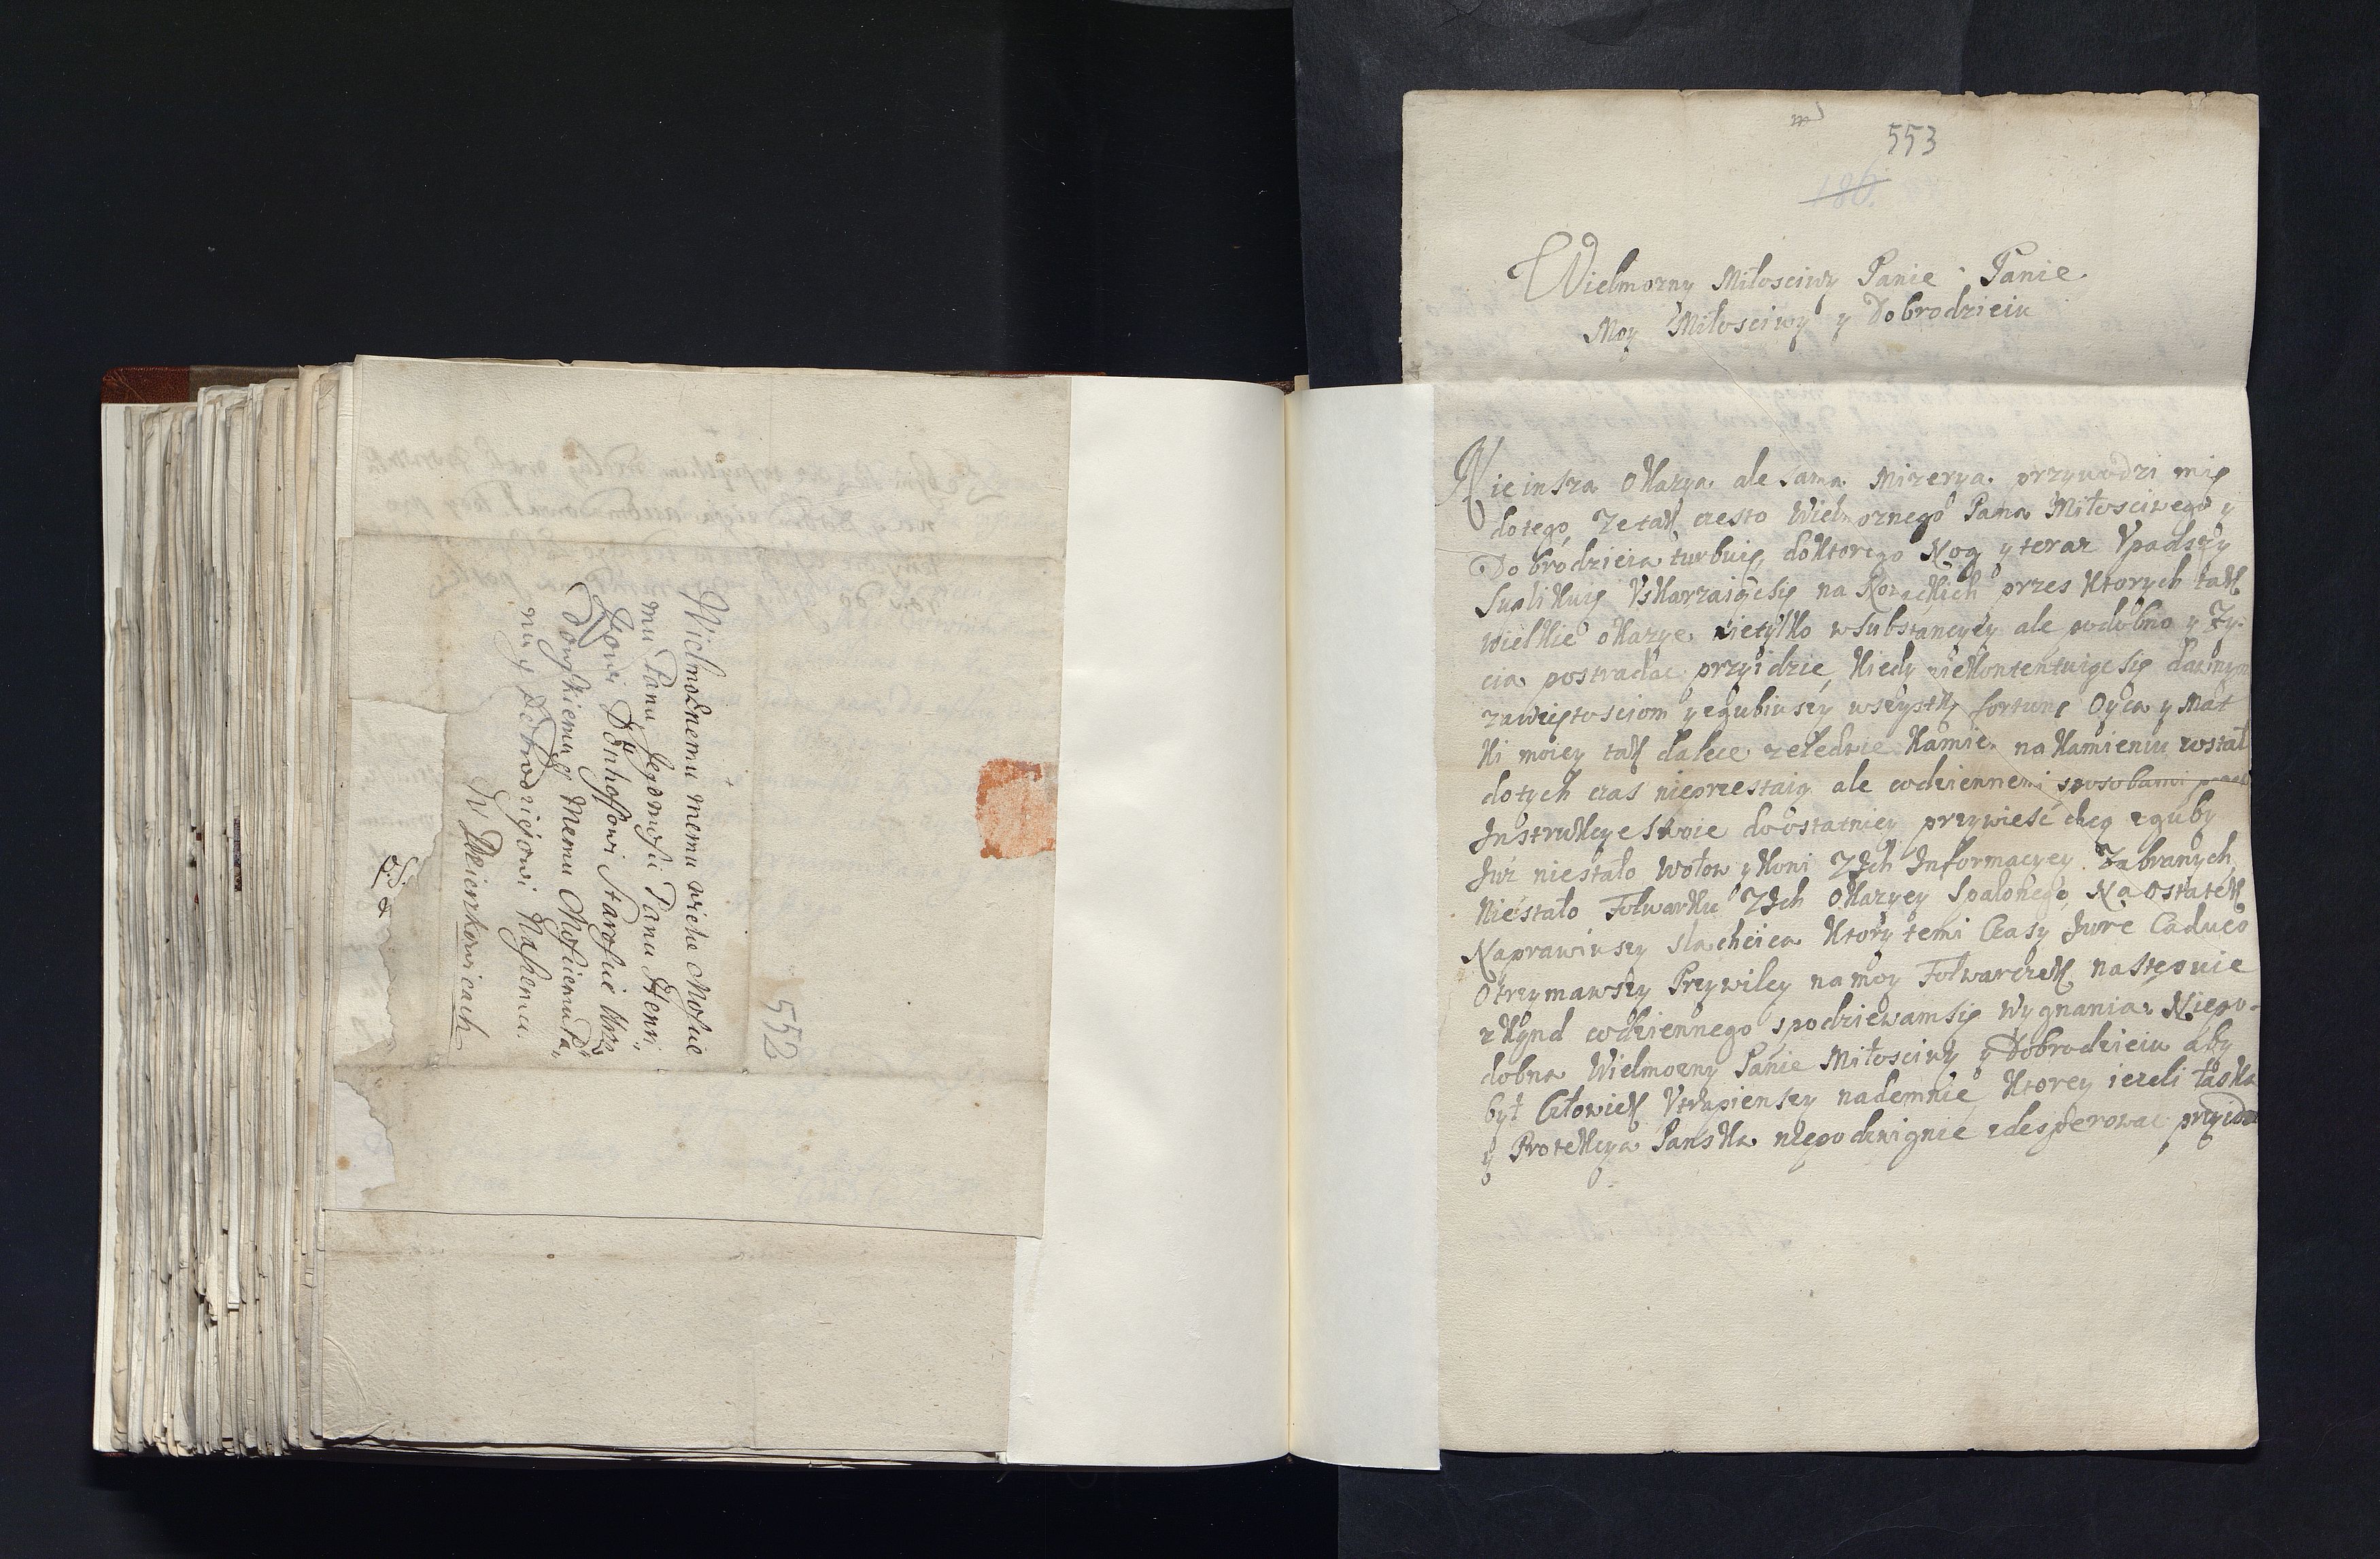 552
Wielmożnemu memu wielce Moscie
mu Panu Jegomosci Panu Henri
kowi Dönhoffowi Staroscie
Memu Mosciemu Pa„
nu y Dobrodziejowi Naszemu.
W Dzierzkowicach
553
186.
Wielmozny Miłosciwy Panie Panie
Moy Miłosciwy y Dobrodzieiu
Nie insza okazya ale sama Mizerya przywodzi mię
dotego, Zetak czesto Wielmoznego Pana Miłosciwego y
Dobrodzieia turbuię, doktorego Nog y teraz Vpadszy
Suplikuię Vskarzaiącsię na Kozackich przes ktorych tak
wielkie okazye nietylko wsubstancyey ale podobno y Zy-
cia postradac przyidzie, kiedy niekontentuiąc się dawnym
zawziętosciom y zgubiwszy wszystkę fortunę Oyca y Mat
ki moiey tak dalece zeledwie kamien na kamieniu został
dotych czas nieprzestaią ale codziennemi sposobami przes
Instrukcye swoie doostatniey przywiesć chcą zguby
Juz niestało wołow y koni Zych Informacyey Zabranych,
Niestało Folwarku Zych okazyey Spalonego, Na ostatek
Naprawiwszy slachcica ktory temi Czasy Jure Caduco
Otrzymawszy Przywiley na moy Folwarczek nastepuie
zkąnd codziennego spodziewamsię wygnania. Niepo-
dobna Wielmozny Panie Miłosciwy y Dobrodzieiu aby
był Człowiek Vtrapienszy nademnie, ktorey iezeli łaska
y Protekcya Panska niepodzwignie zdesperowac przyidzie